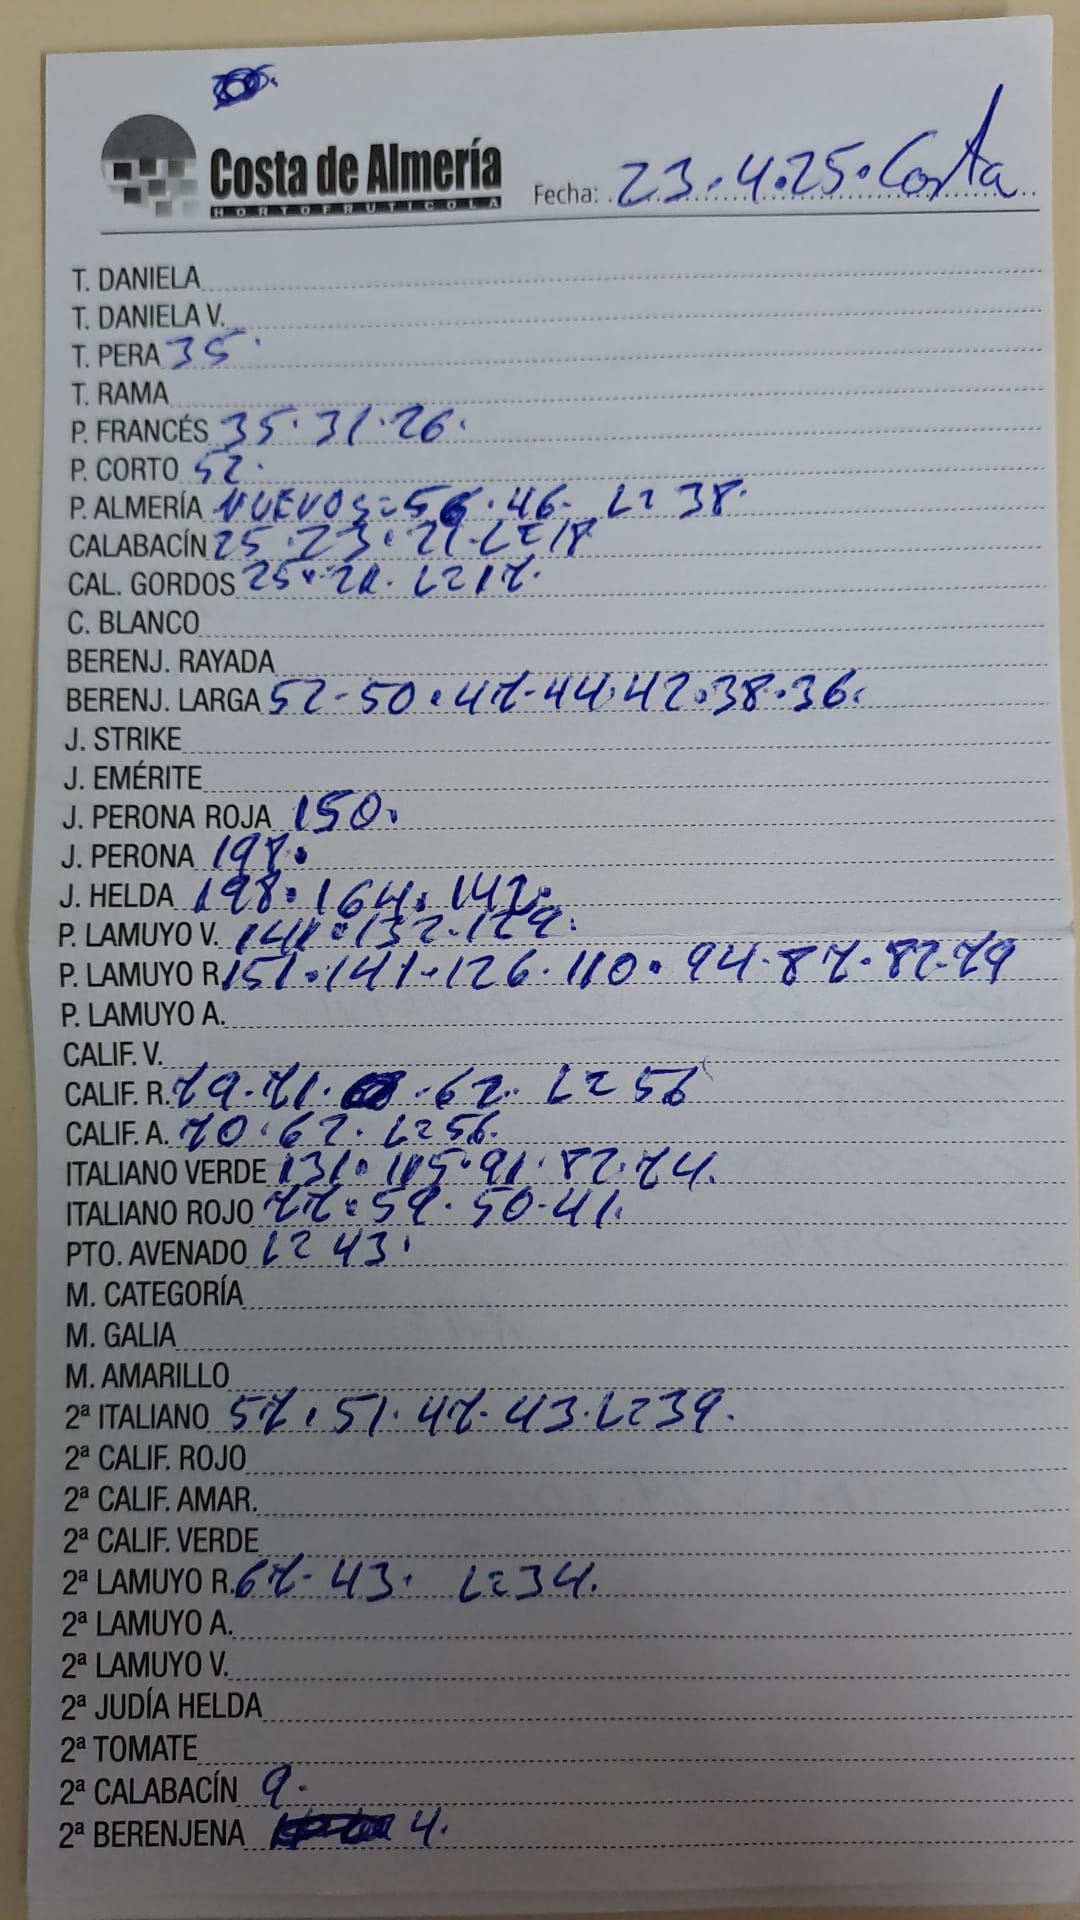 Costa de Almería
HORTOFRUTICOLA
Fecha: 23.4.25. Costa
T. DANIELA
T. DANIELA V.
T. PERA 35.
T. RAMA
P. FRANCÉS 35.31.26.
P. CORTO 52.
P. ALMERÍA NUEVOS=56.46. L=38.
CALABACÍN 25.23.21.L=18
CAL. GORDOS 25.21. L=17.
C. BLANCO
BERENJ. RAYADA
BERENJ. LARGA 52-50.47-44.42.38.36.
J. STRIKE
J. EMÉRITE
J. PERONA ROJA 150.
J. PERONA 198.
J. HELDA 198.164.142.
P. LAMUYO V. 141.132.129.
P. LAMUYO R. 151.141.126.110.94.87.82.79
P. LAMUYO A.
CALIF. V.
CALIF. R. 79.71. .62. L=56
CALIF. A. 70.62. L=56.
ITALIANO VERDE 131.115.91.82.74.
ITALIANO ROJO 77.59.50.41.
PTO. AVENADO L=43.
M. CATEGORÍA
M. GALIA
M. AMARILLO
2ª ITALIANO 57.51.47.43.L=39.
2ª CALIF. ROJO
2ª CALIF. AMAR.
2ª CALIF. VERDE
2ª LAMUYO R. 67-43. L=34.
2ª LAMUYO A.
2ª LAMUYO V.
2ª JUDÍA HELDA
2ª TOMATE
2ª CALABACÍN 9.
2ª BERENJENA 4.